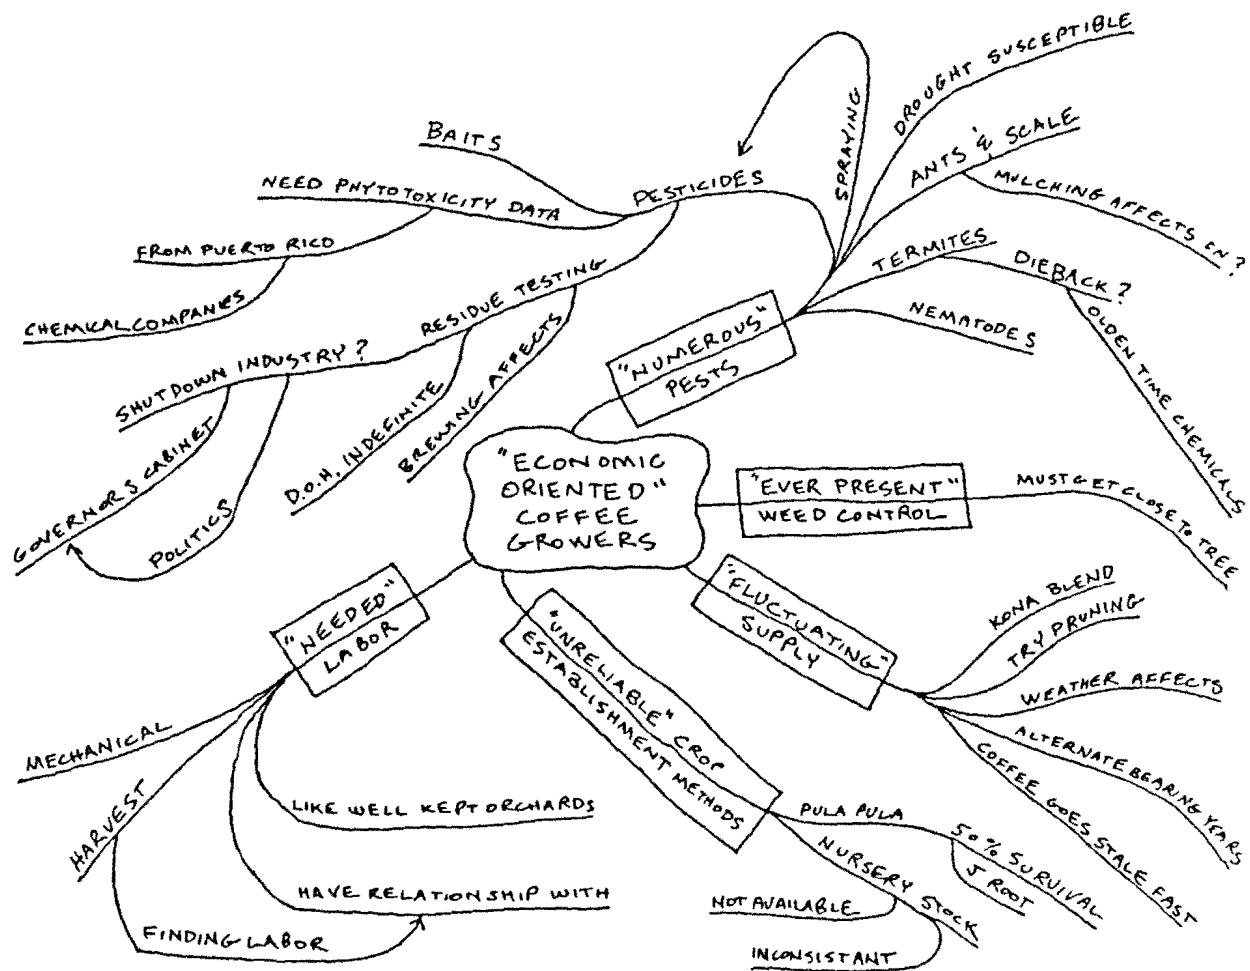 "ECONOMIC
ORIENTED"
COFFEE
GROWERS
"NUMEROUS"
PESTS
SPRAYING
PESTICIDES
BAITS
NEED PHYTOTOXICITY DATA
FROM PUERTO RICO
CHEMICAL COMPANIES
RESIDUE TESTING
BREWING AFFECTS
D.O.H. INDEFINITE
SHUTDOWN INDUSTRY?
GOVERNORS CABINET
POLITICS
DROUGHT SUSCEPTIBLE
ANTS & SCALE
MULCHING AFFECTS ON?
TERMITES
DIEBACK?
OLDEN TIME CHEMICALS
NEMATODES
"EVER PRESENT"
WEED CONTROL
MUST GET CLOSE TO TREE
"FLUCTUATING"
SUPPLY
KONA BLEND
TRY PRUNING
WEATHER AFFECTS
ALTERNATE BEARING YEARS
COFFEE GOES STALE FAST
"UNRELIABLE" CROP
ESTABLISHMENT METHODS
PULA PULA
50% SURVIVAL
J ROOT
NURSERY STOCK
NOT AVAILABLE
INCONSISTANT
"NEEDED"
LABOR
MECHANICAL
HARVEST
FINDING LABOR
HAVE RELATIONSHIP WITH
LIKE WELL KEPT ORCHARDS